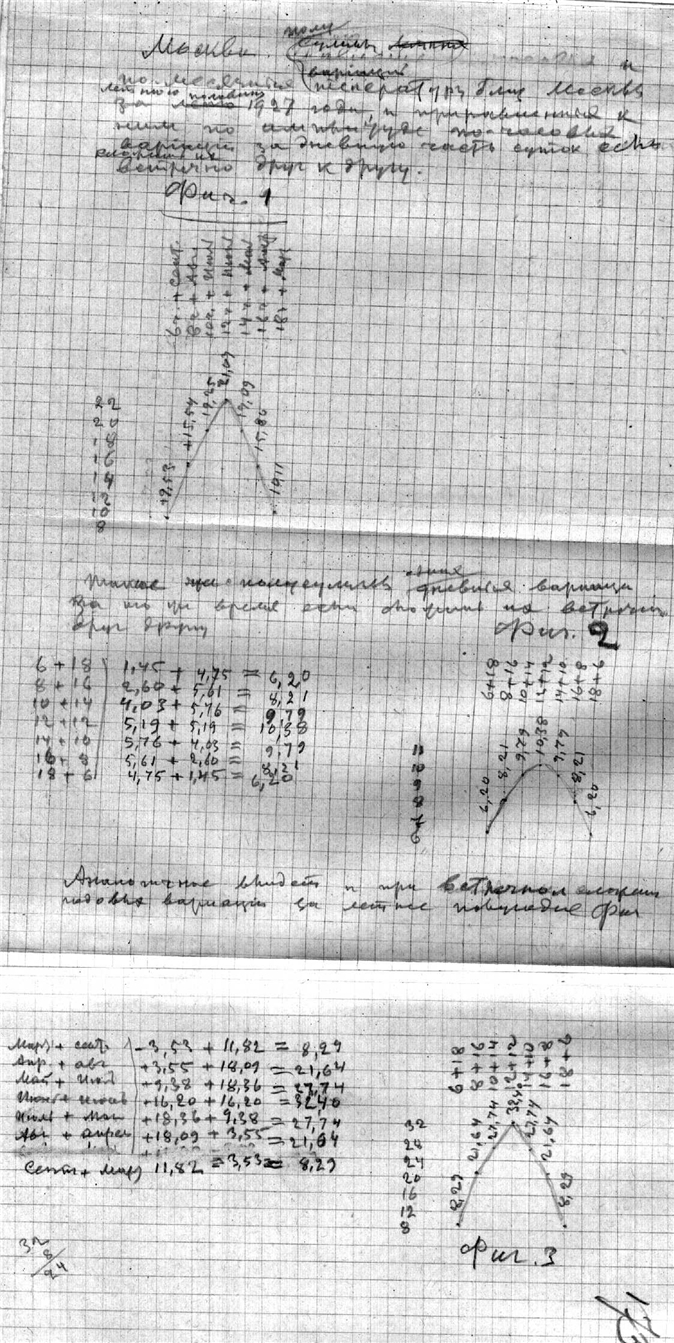 Москва.
полу
суммы
вариаций и
по месячных температур близ Москвы
летнюю половину
за лето 1927 года и приравненных к
ним по амплитуде по-часовых
вариаций за дневную часть суток если
сложить их
встречно друг к другу.
Фиг. 1
6ч + Сент.
8ч + Авг
10ч + Июл
12ч + Июн
14ч + Май
16ч + Апр
18ч + Мар
22
20
18
16
14
12
10
8
+15,54
19,25
21,09
19,09
15,80
Такие же полусуммы дневных вариаций
за то же время если сложить их встречно
друг другу
Фиг. 2
6 + 18 1,45 + 4,75 = 6,20
8 + 16 2,60 + 5,61 = 8,21
10 + 14 4,03 + 5,76 = 9,79
12 + 12 5,19 + 5,19 = 10,38
14 + 10 5,76 + 4,03 = 9,79
16 + 8 5,61 + 2,60 = 8,21
18 + 6 4,75 + 1,45 = 6,20
6+18
8+16
10+14
12+12
14+10
16+8
18+6
11
10
9
8
7
6
6,20
8,21
9,79
10,38
9,79
8,21
6,20
Аналогичное выйдет и при встречном сложении
годовых вариаций за летнее полугодие Фиг
Март + сент -3,53 + 11,82 = 8,29
Апр + авг +3,55 + 18,09 = 21,64
Май + Июл +9,38 + 18,36 = 27,74
Июнь + июнь +16,20 + 16,20 = 32,40
Июль + май +18,36 + 9,38 = 27,74
Авг + апрел +18,09 + 3,55 = 21,64
Сент + март 11,82 - 3,53 = 8,29
6+18
8+16
10+14
12+12
14+10
16+8
18+6
32
28
24
20
16
12
8
8,29
21,64
27,74
32,40
27,74
21,64
8,29
Фиг. 3
32
8
24